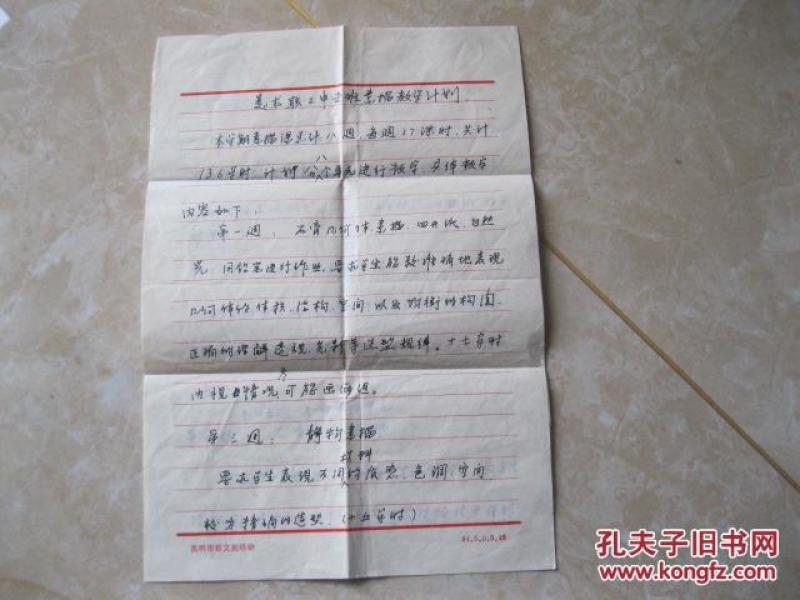 美术职工中专班素描教学计划
本学期素描课共计八週，每週17课时，共计
136学时，计划分八个单元进行教学，具体教学
内容如下：
第一週： 石膏几何体素描，四开纸，自然
光，用铅笔进行作业，要求学生能较准确地表现
几何体的体积、结构、空间，以及均衡的构图，
正确的理解透视、光影等造型规律。十七学时
内视各情况可能画两组。
第二週： 静物素描
要求学生表现不同材料的质感、色调、空间
较为精确的造型（十五学时）
孔夫子旧书网
www.kongfz.com